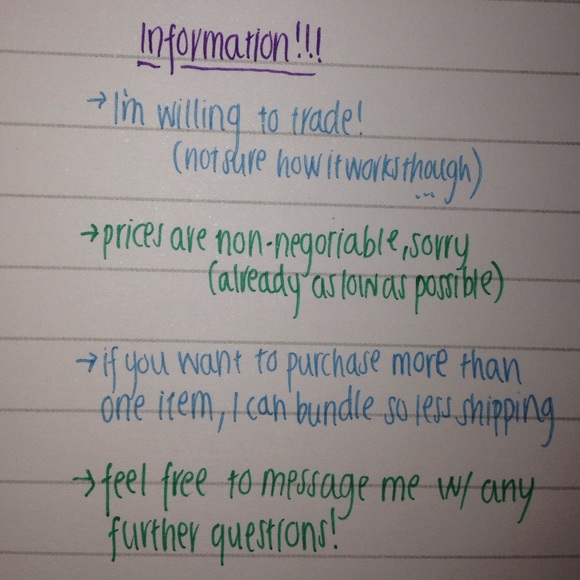 Information!!!
→ I'm willing to trade!
(not sure how it works though)
...
→ prices are non-negotiable, sorry
(already as low as possible)
→ if you want to purchase more than
one item, I can bundle so less shipping
→ feel free to message me w/ any
further questions!